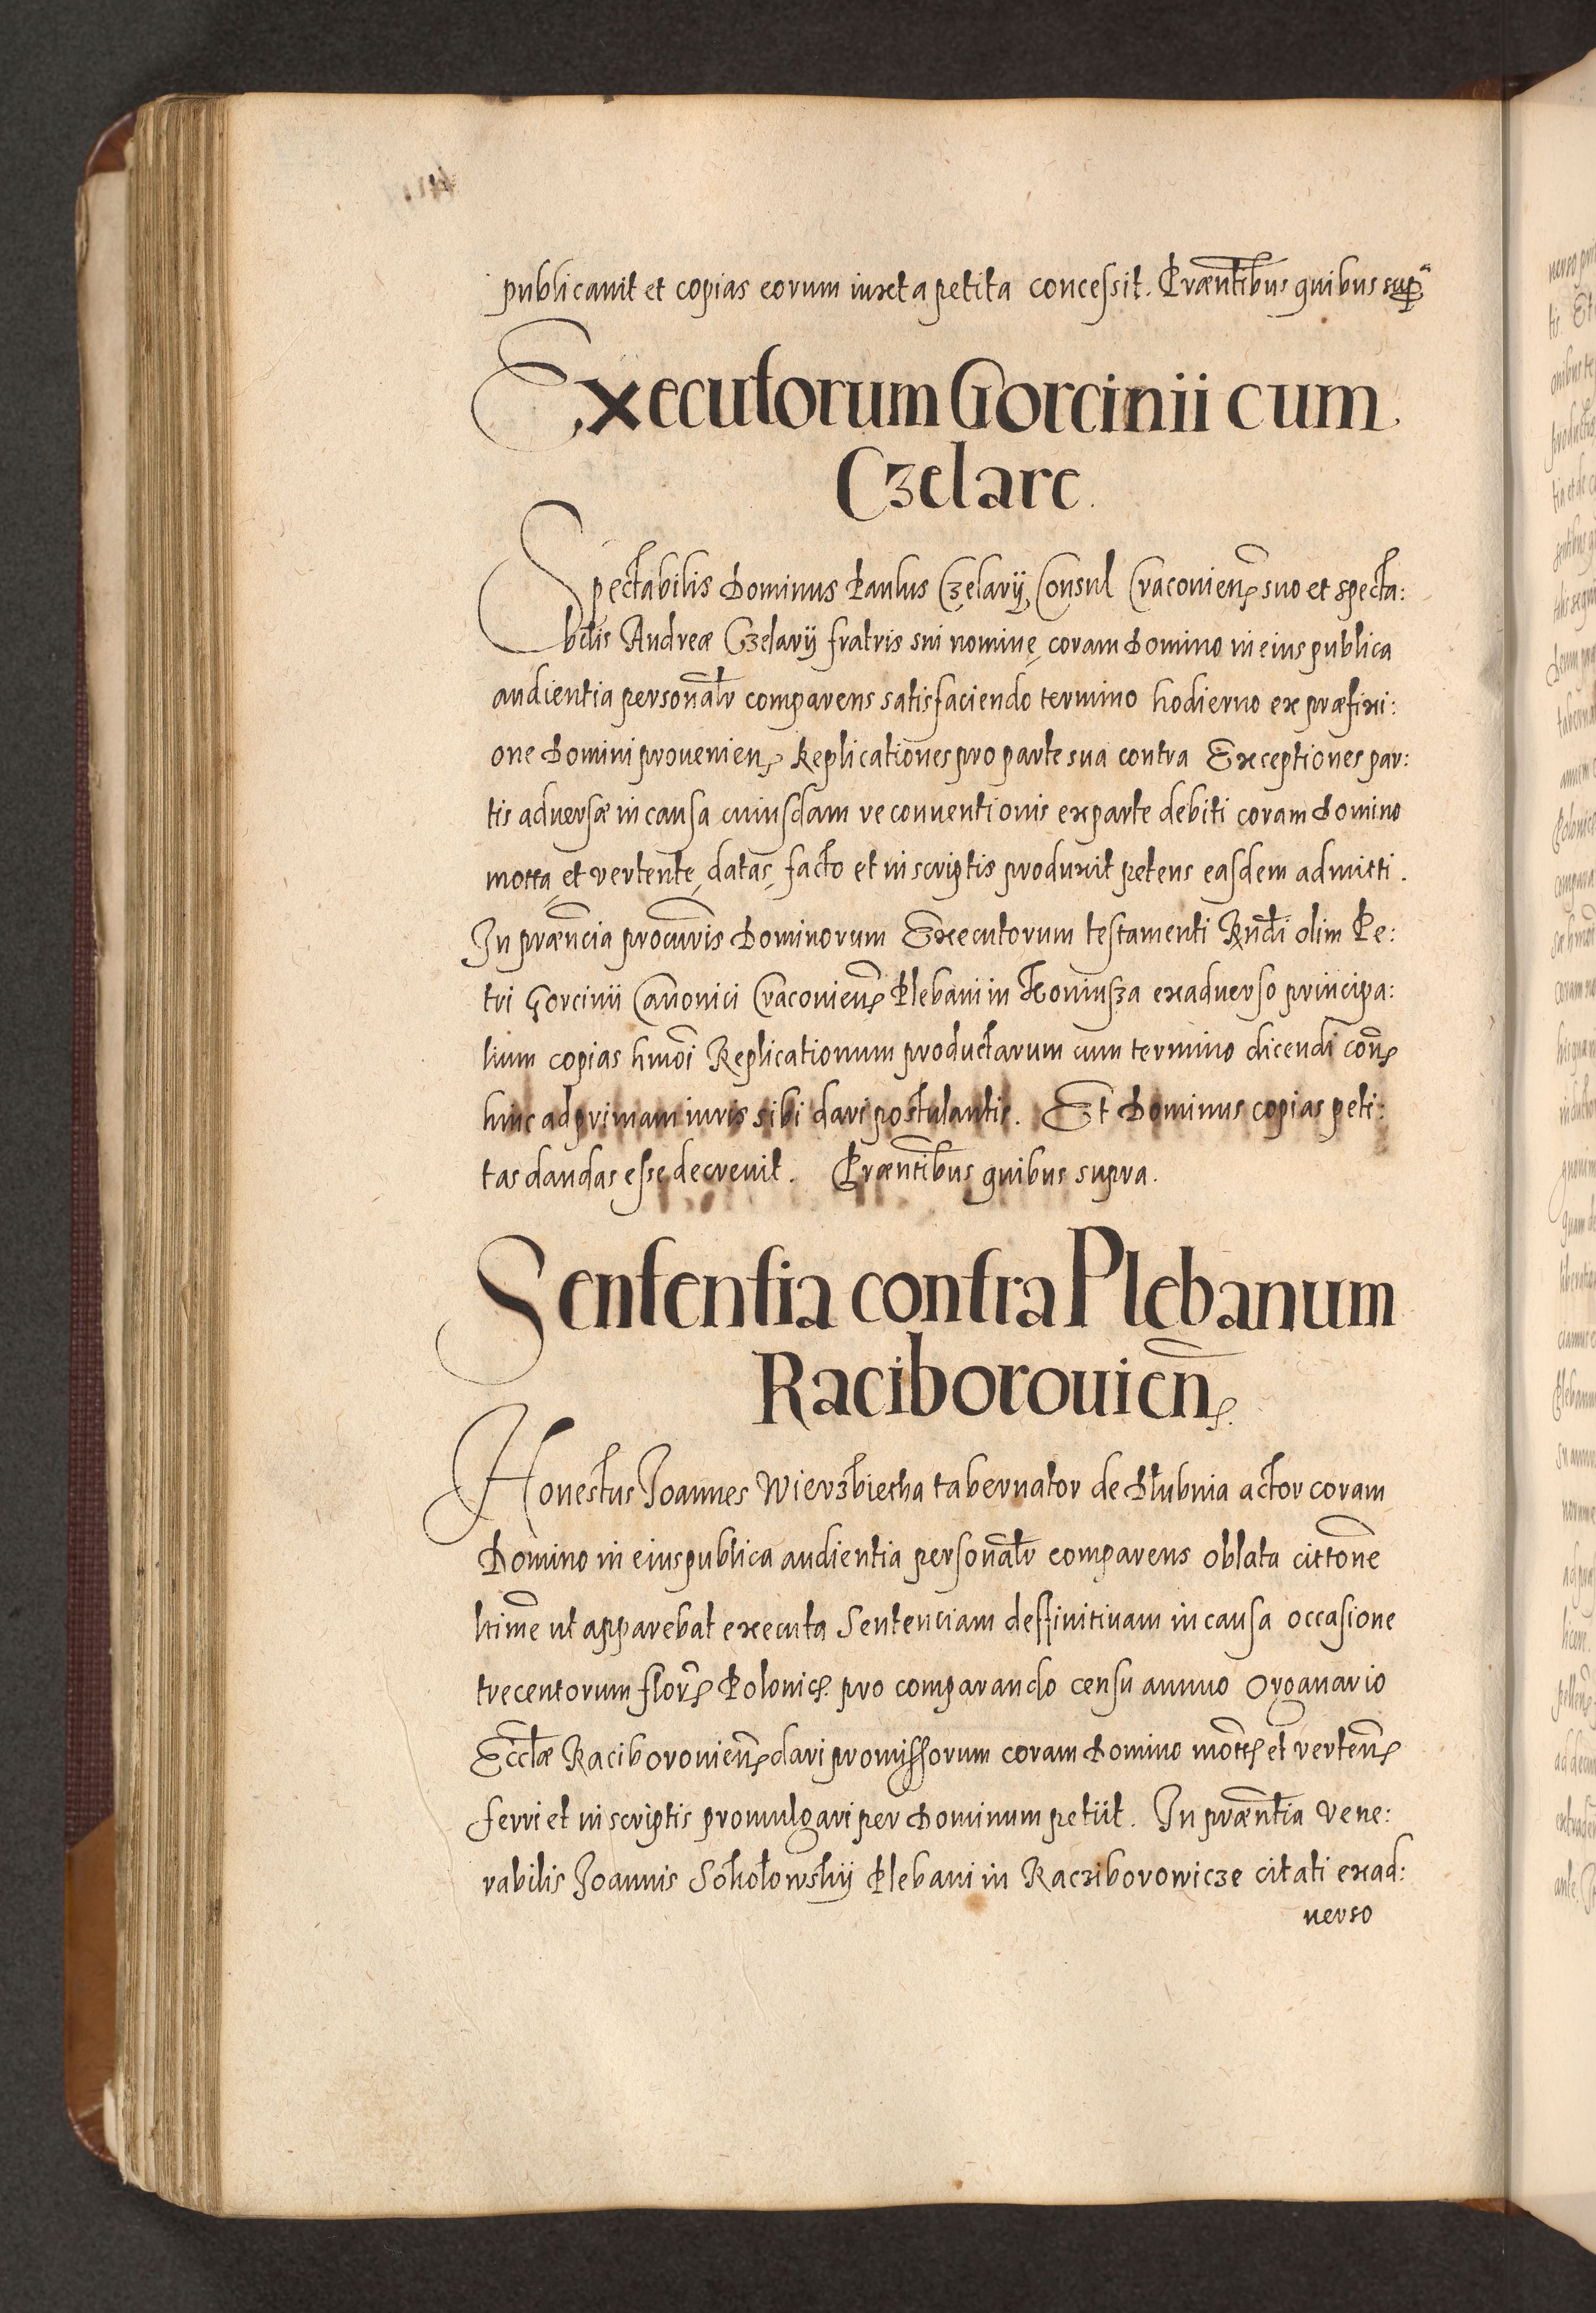 publicauit et copias eorum iuxta petita concessit. Præntibus quibus sup^a
Executorum Gorcinii cum
Czelare.
Spectabilis Dominus Paulus Czelarÿ, Consul Cracouien̄ suo et specta:
bilis Andreæ Czelarÿ fratris sui nomine, coram Domino in eius publica
audientia personalr̄ comparens satisfaciendo termino hodierno ex præfixi:
one Domini prouenien̄ Replicationes pro parte sua contra Exceptiones par:
tis aduersæ in causa cuiusdam reconuentionis ex parte debiti coram Domino
motta et vertente, datas, facto et in scriptis produxit petens easdem admitti.
In præncia procuris Dominorum Executorum testamenti Rndi olim Pe:
tri Gorcinii Canonici Cracouien̄ Plebani in Koniusza ex aduerso principa:
lium copias hmōi Replicationum productarum cum termino dicendi con̄
hinc ad primam iuris sibi dari postulantis. Et Dominus copias peti:
tas dandas esse decreuit. Præntibus quibus supra.
Sententia contra Plebanum
Raciborouien̄.
Honestus Joannes Wierzbietha tabernator de Dłubnia actor coram
Domino in eius publica audientia personalr̄ comparens oblata cittone
ltime ut apparebat executa Sentenciam deffinitiuam in causa occasione
trecentorum flor̄ Polonic̄. pro comparando censu annuo Organario
Ecclæ Raciborouien̄ dari promissorum coram Domino mott̄ et verten̄
ferri et in scriptis promulgari per Dominum petiit. In præntia Vene:
rabilis Joannis Sokołowskÿ Plebani in Racziborowicze citati exad:
uerso